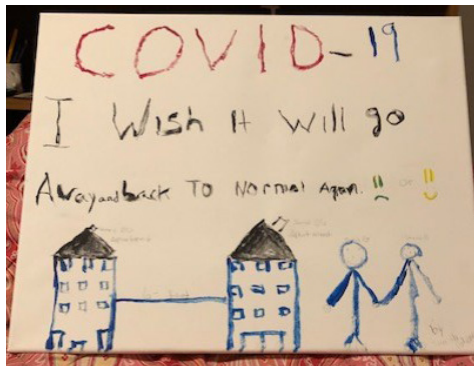 COVID-19
I Wish It Will go
Away and back To Normal Again. or
by